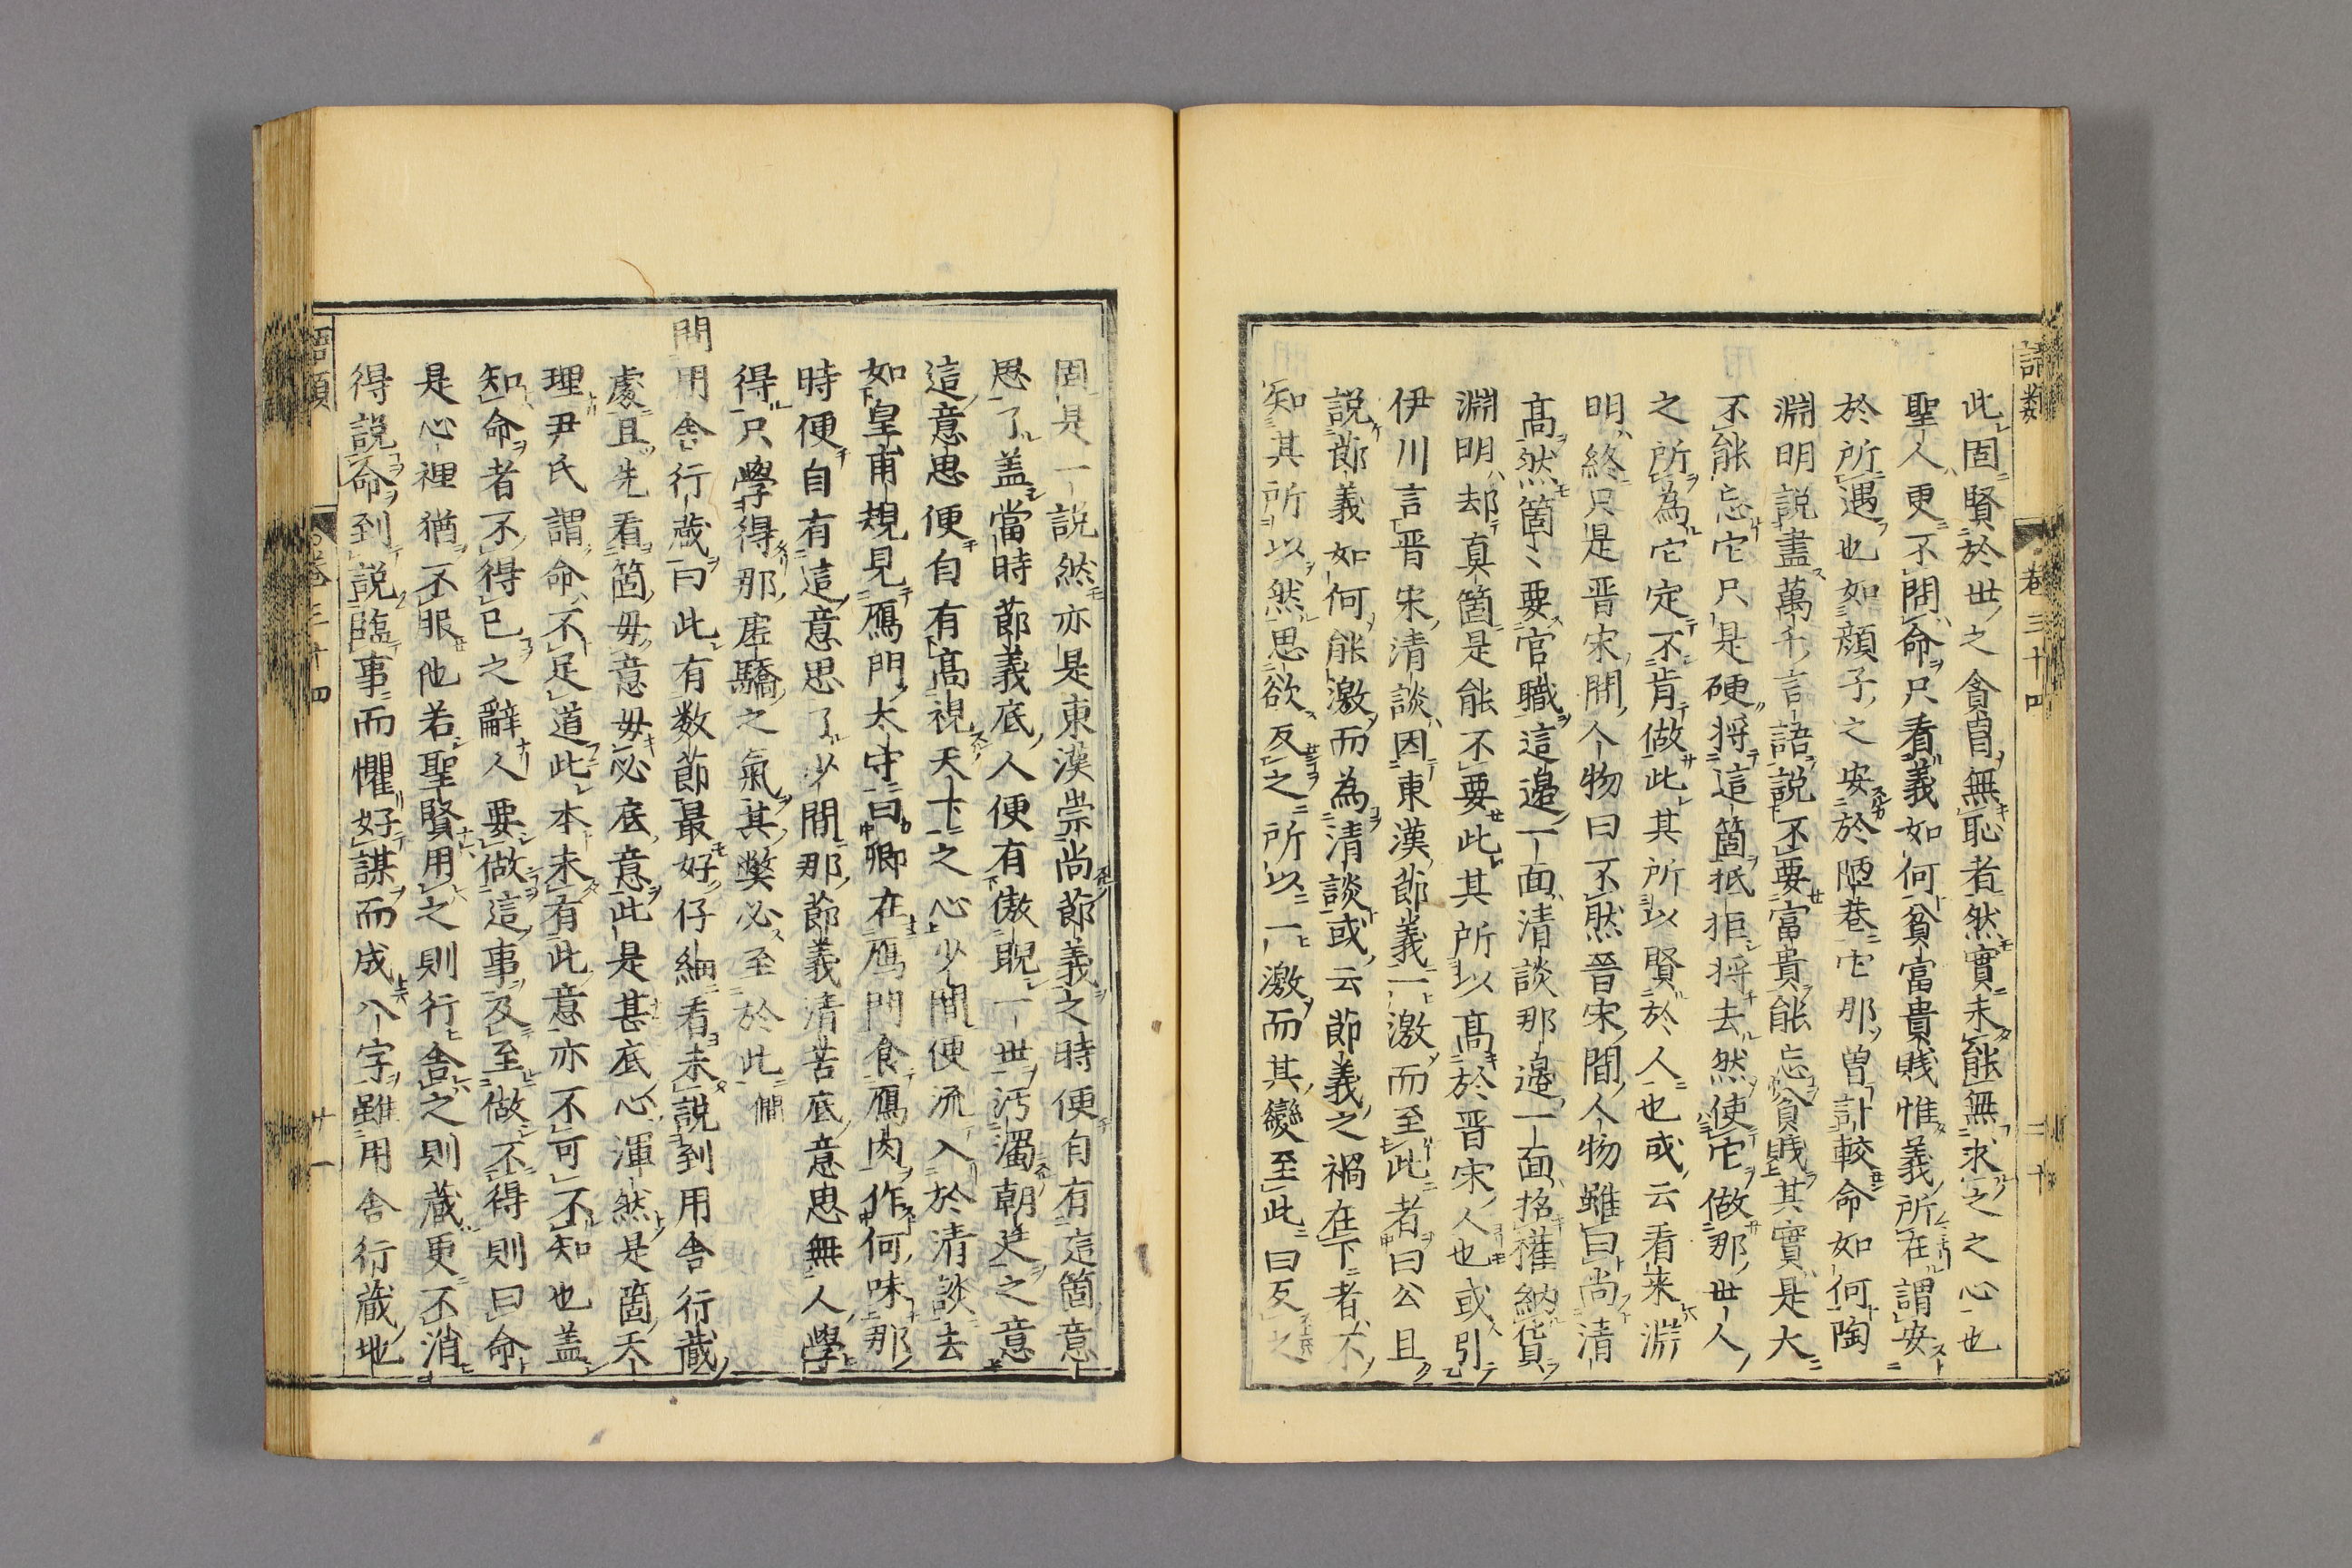 語類
卷三十四
二十
此固賢於世之貪冒無恥者然實未能無求之之心也
聖人更不問命只看義如何貧富貴賤惟義所在謂安
於所遇也如顔子之安於陋巷它那曽計較命如何陶
淵明說盡萬千言語說不要富貴能忘貧賤其實是大
不能忘它只是硬将這箇抵拒将去然使它做那世人
之所為它定不肯做此其所以賢於人也或云看来淵
明終只是晋宋間人物曰不然晋宋間人物雖曰尚清
髙然箇〻要官職這邉一面清談那邉一面招權納貨
淵明却真箇是能不要此其所以髙於晋宋人也或引
伊川言晋宋清談因東漢節義一激而至此者曰公且
說節義如何能激而為清談或云節義之禍在下者不
知其所以然思欲反之所以一激而其變至此曰反之
固是一說然亦是東漢崇尚節義之時便自有這箇意
思了盖當時節義底人便有傲睨一世汚濁朝廷之意
這意思便自有髙視天下之心少間便流入於清談去
如皇甫規見鴈門太守曰卿在鴈門食鴈肉作何味那
時便自有這意思了少間那節義清苦底意思無人學
得只學得那虚驕之氣其弊必至於此僩
問用舎行蔵曰此有数節最好仔細看未說到用舎行蔵
處且先看箇毋意毋必底意此是甚底心渾然是箇天
理尹氏謂命不足道此本未有此意亦不可不知也盖
知命者不得已之辭人要做這事及至做不得則曰命
是心裡猶不服他若聖賢用之則行舎之則蔵更不消
得說命到說臨事而懼好謀而成八字雖用舎行蔵地
語類
卷三十四
廿一